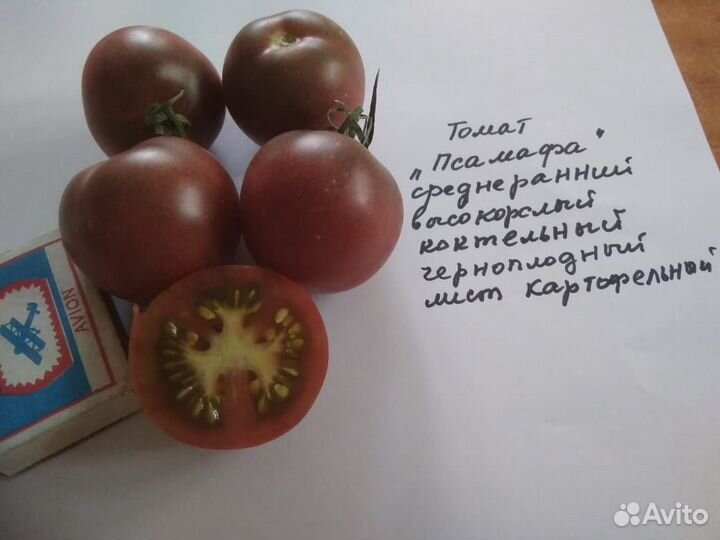 Томат
"Псамафа"
среднеранний
высокорслый
коктельный
черноплодный
лист картофельный
AVION
Avito